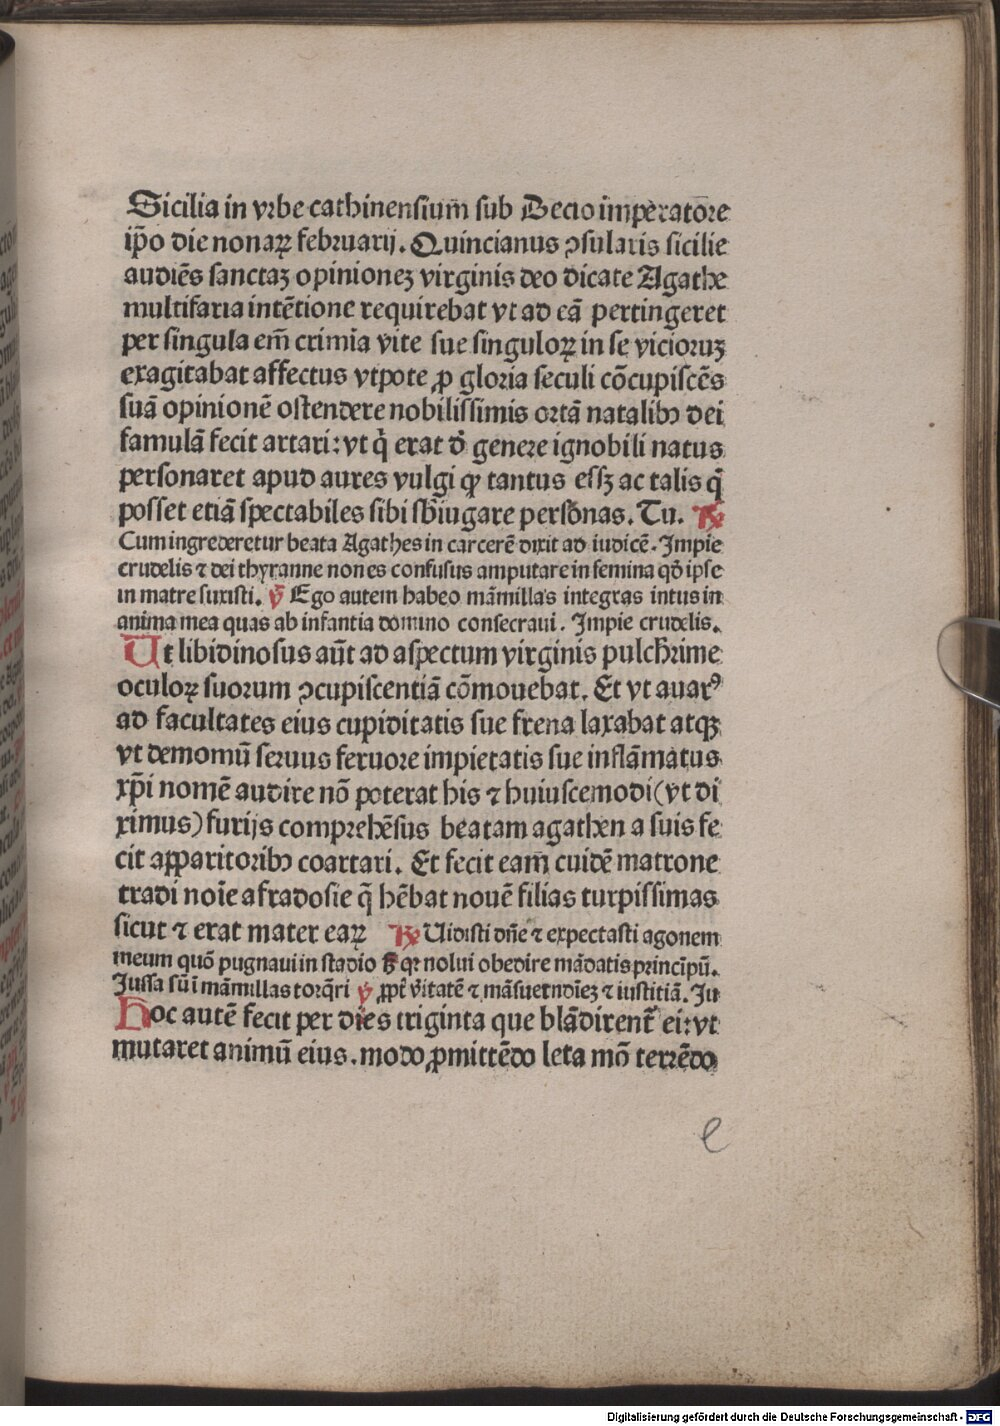 Sicilia in vrbe cathinensium̄ sub Decio imperatore
ip̄o die nonaꝝ februarij. Quincianus ꝯsularis sicilie
audiēs sanctaꝫ opinioneꝫ virginis deo dicate Agathe
multifaria intētione requirebat vt ad eā pertingeret
per singula em̄ crimīa vite sue singuloꝝ in se vicioruꝫ
exagitabat affectus vtpote ꝓ gloria seculi cōcupiscēs
suā opinionē ostendere nobilissimis ortā natalibꝰ dei
famulā fecit artari: vt q̇ erat ď genere ignobili natus
personaret apud aures vulgi qꝫ tantus essꝫ ac talis q̄
posset etiā spectabiles sibi sb̄iugare personas. Tu. ℟
Cum ingrederetur beata Agathes in carcerē dixit ad iudicē. Impie
crudelis ⁊ dei thyranne non es confusus amputare in femina qď ipse
in matre suxisti. ℣ Ego autem habeo māmillas integras intus in
anima mea quas ab infantia domino consecraui. Impie crudelis.
Ut libidinosus aūt ad aspectum virginis pulcħrime
oculoꝝ suorum ꝯcupiscentiā cōmouebat. Et vt auarꝰ
ad facultates eius cupiditatis sue frena laxabat atqꝫ
vt demomū seruus feruore impietatis sue inflāmatus
xp̄i nomē audire nō poterat his ⁊ huiuscemodi (vt di
ximus) furijs comprehēsus beatam agathen a suis fe
cit apparitoribꝰ coartari. Et fecit eam̄ cuidē matrone
tradi noīe afradosie q̄ hēbat nouē filias turpissimas
sicut ⁊ erat mater eaꝝ ℟ Uidisti dn̄e ⁊ expectasti agonem
meum quō pugnaui in stadio ß qꝛ nolui obedire mādatis principū.
Jussa sū ī māmillas torq̄ri ℣ ꝓpt̄ v̄itatē ⁊ māsuetudīeꝫ ⁊ iustitiā. Ju
Hoc autē fecit per dies triginta que blādirent̄ ei: vt
mutaret animū eius. modo ꝓmittēdo leta mō terrēdo
e
Digitalisierung gefördert durch die Deutsche Forschungsgemeinschaft - DFG